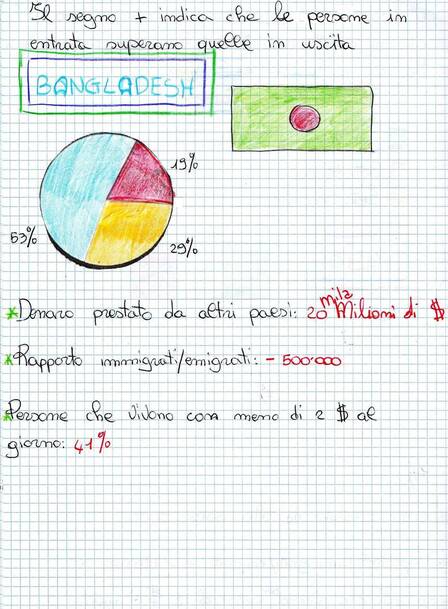 Il segno + indica che le persone in
entrata superano quelle in uscita
BANGLADESH
19%
53%
29%
*Denaro prestato da altri paesi: 20 mila Milioni di $
*Rapporto immigrati/emigrati: - 500.000
*Persone che vivono con meno di 2 $ al
giorno: 41%